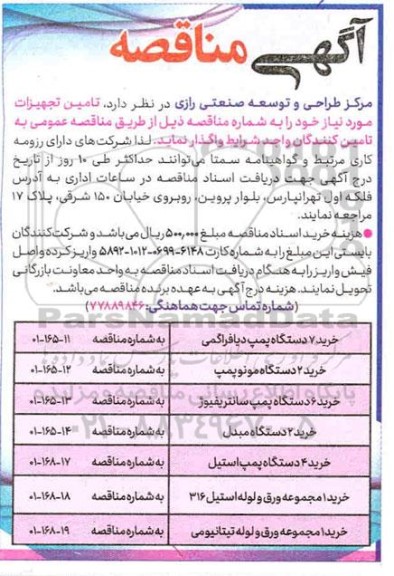 آگهی مناقصه
مرکز طراحی و توسعه صنعتی رازی در نظر دارد، تامین تجهیزات
مورد نیاز خود را به شماره مناقصه ذیل از طریق مناقصه عمومی به
تامین کنندگان واجد شرایط واگذار نماید. لذا شرکت‌های دارای رزومه
کاری مرتبط و گواهینامه سمتا می‌توانند حداکثر طی ۱۰ روز از تاریخ
درج آگهی جهت دریافت اسناد مناقصه در ساعات اداری به آدرس
فلکه اول تهرانپارس، بلوار پروین، روبروی خیابان ۱۵۰ شرقی، پلاک ۱۷
مراجعه نمایند.
● هزینه خرید اسناد مناقصه مبلغ ۵۰۰,۰۰۰ ریال می‌باشد و شرکت‌کنندگان
بایستی این مبلغ را به شماره کارت ۶۱۴۸-۰۶۹۹-۱۰۱۲-۵۸۹۲ واریز کرده و اصل
فیش واریز را به هنگام دریافت اسناد مناقصه به واحد معاونت بازرگانی
تحویل نمایند. هزینه درج آگهی به عهده برنده مناقصه می‌باشد.
(شماره تماس جهت هماهنگی: ۷۷۸۸۹۸۴۶)
خرید ۷ دستگاه پمپ دیافراگمی به شماره مناقصه ۱۱-۱۶۵-۰۱
خرید ۲ دستگاه مونو پمپ به شماره مناقصه ۱۲-۱۶۵-۰۱
خرید ۶ دستگاه پمپ سانتریفیوژ به شماره مناقصه ۱۳-۱۶۵-۰۱
خرید ۲ دستگاه مبدل به شماره مناقصه ۱۴-۱۶۵-۰۱
خرید ۴ دستگاه پمپ استیل به شماره مناقصه ۱۷-۱۶۸-۰۱
خرید ۱ مجموعه ورق و لوله استیل ۳۱۶ به شماره مناقصه ۱۸-۱۶۸-۰۱
خرید ۱ مجموعه ورق و لوله تیتانیومی به شماره مناقصه ۱۹-۱۶۸-۰۱
ParsNamadData